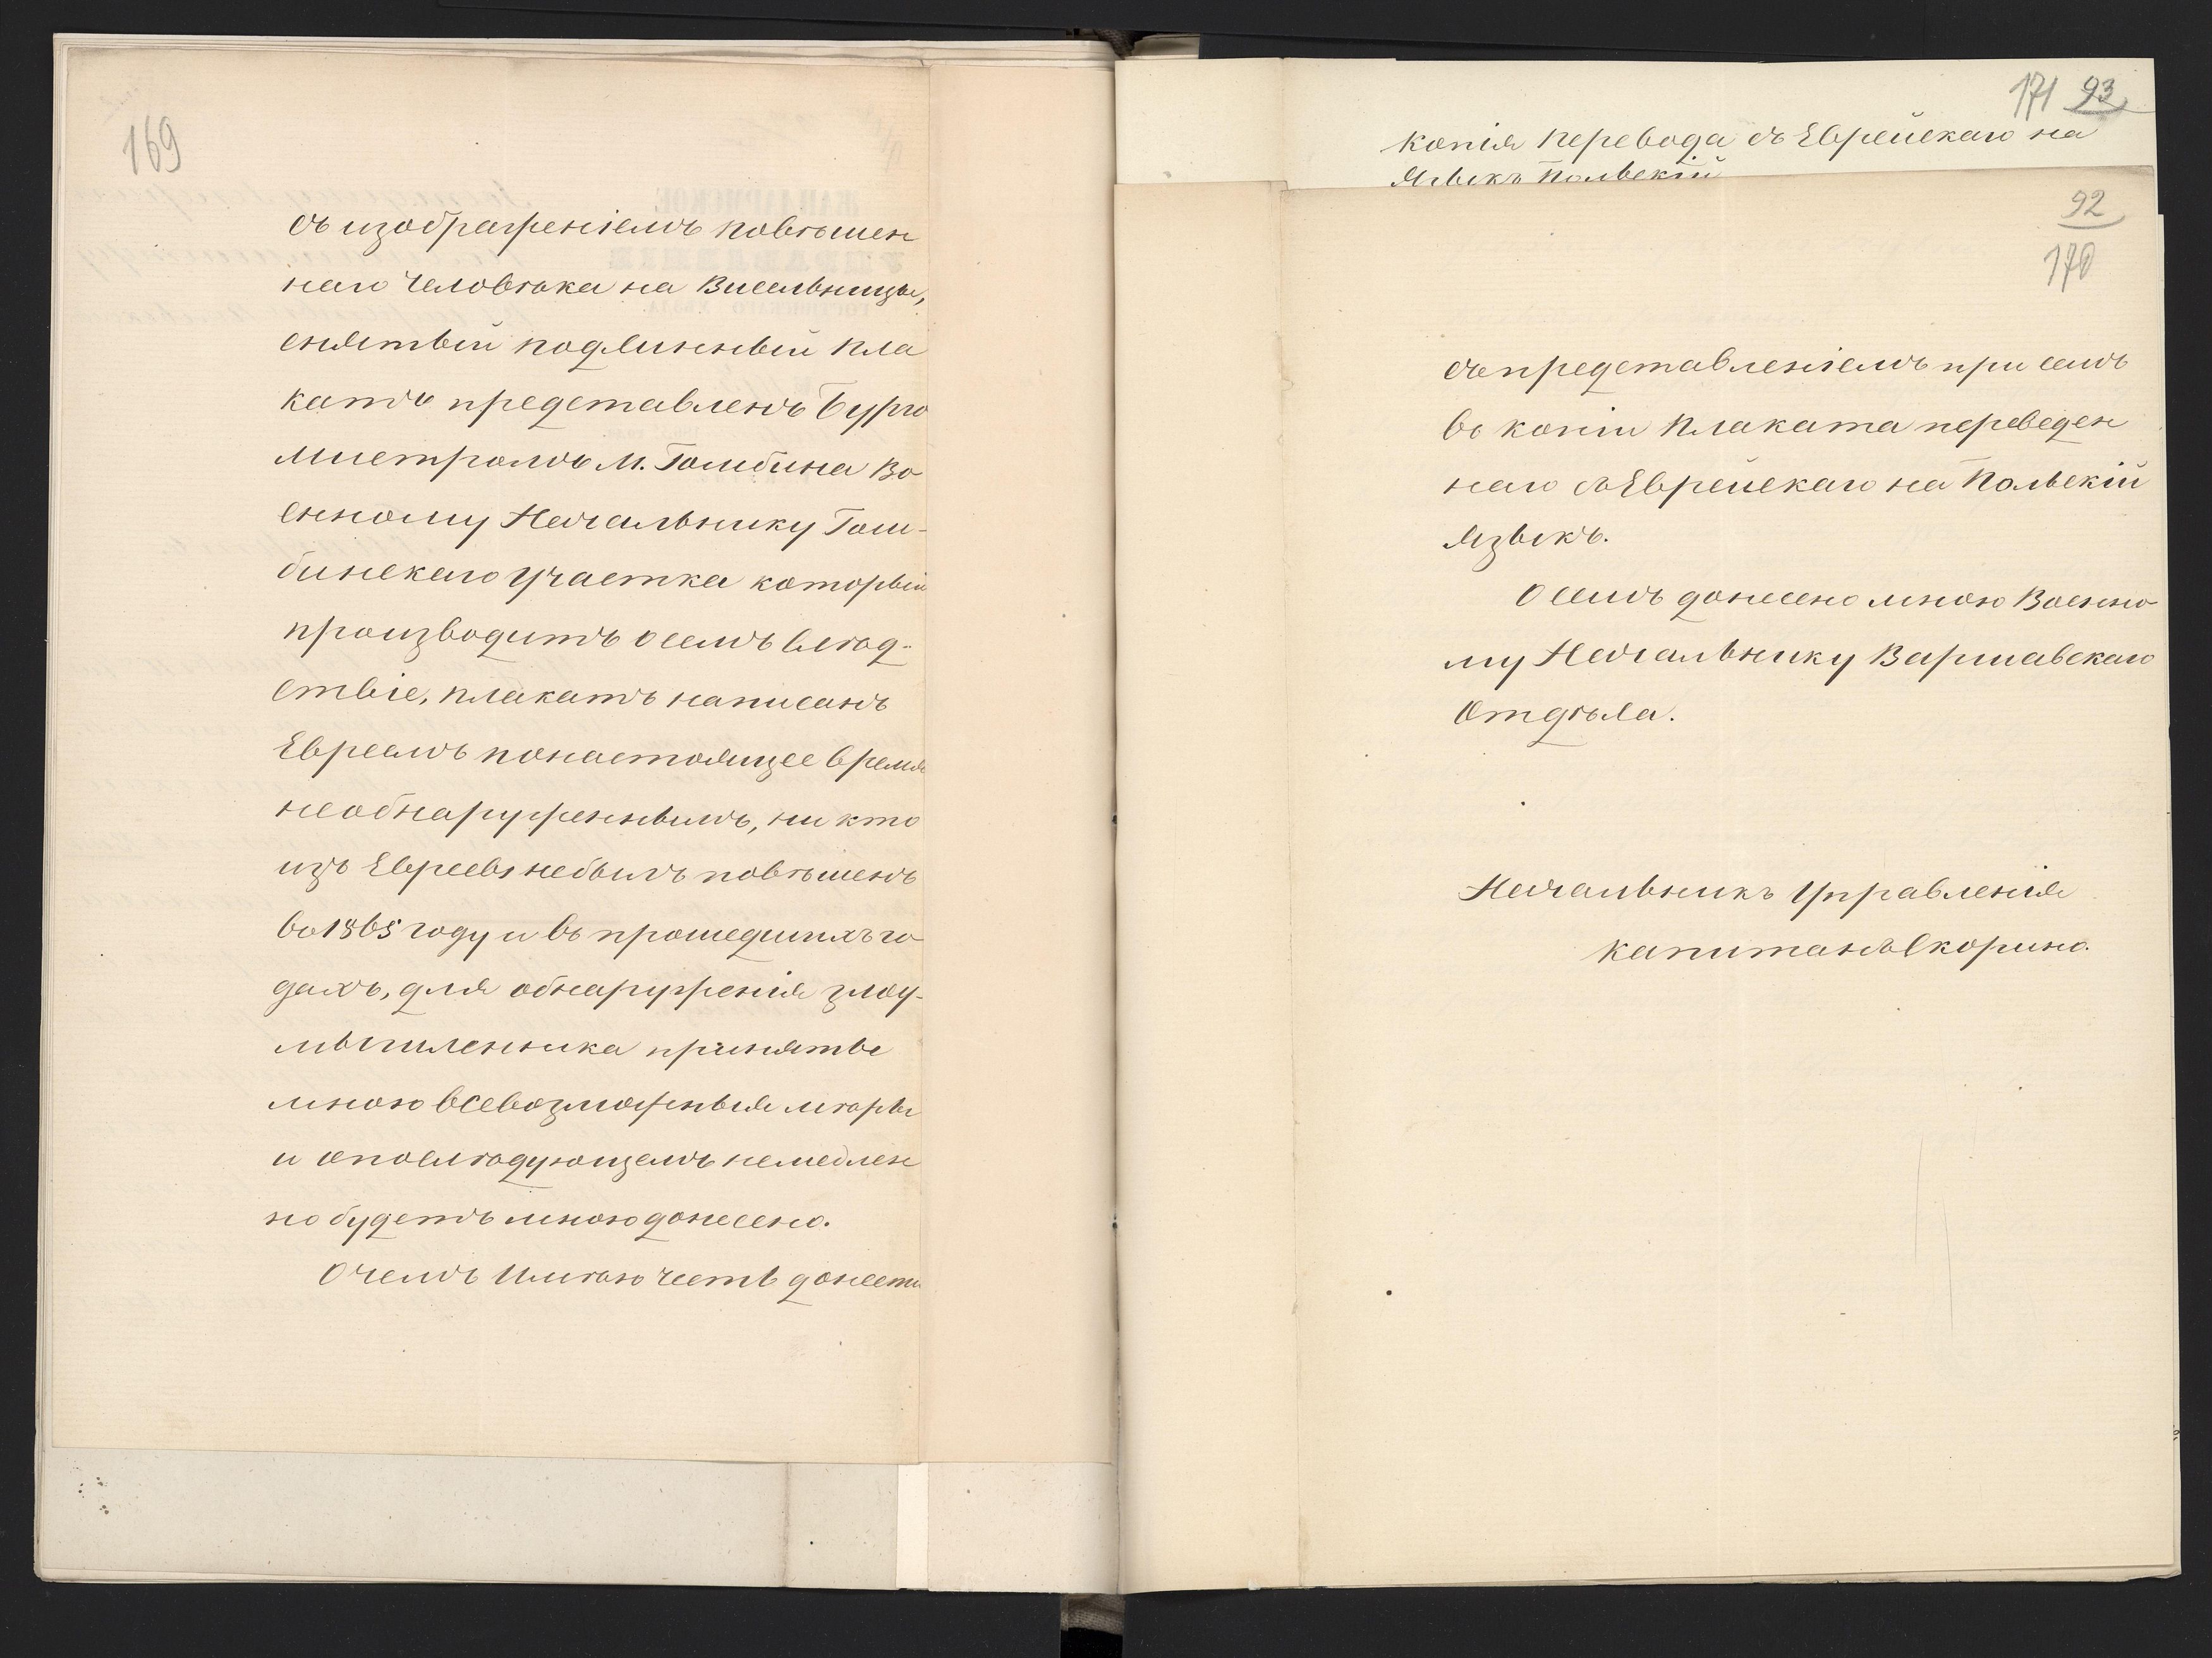 169
съ изображеніемъ повѣшен
наго Человѣка на Висельницы,
снятый подлинный пла
катъ представленъ Бурго
мистромъ М. Гомбина Во
енному Начальнику Гом-
бинскаго Участка который
производитъ о семъ слѣд-
ствіе, плакатъ написанъ
Евреемъ понастоящее время
необнаруженнымъ, ни кто
изъ Евреевъ небылъ повѣшенъ
въ 1865 году и въ прошедшихъ го
дахъ, для обнаруженія злоу-
мышленника приняты
мною всевозможныя мѣры
и опослѣдующемъ немедлен
но будетъ мною донесено.
О чемъ Имѣю честь донести
171 93
Копія перевода съ Еврейскаго на
Языкъ Польскій
92
170
съ представленіемъ при семъ
въ копіи Плаката переведен
наго съ Еврейскаго на Польскій
Языкъ.
О семъ донесено мною Военно
му Начальнику Варшавскаго
Отдѣла.
Начальникъ Управленія
Капитанъ Скорино.